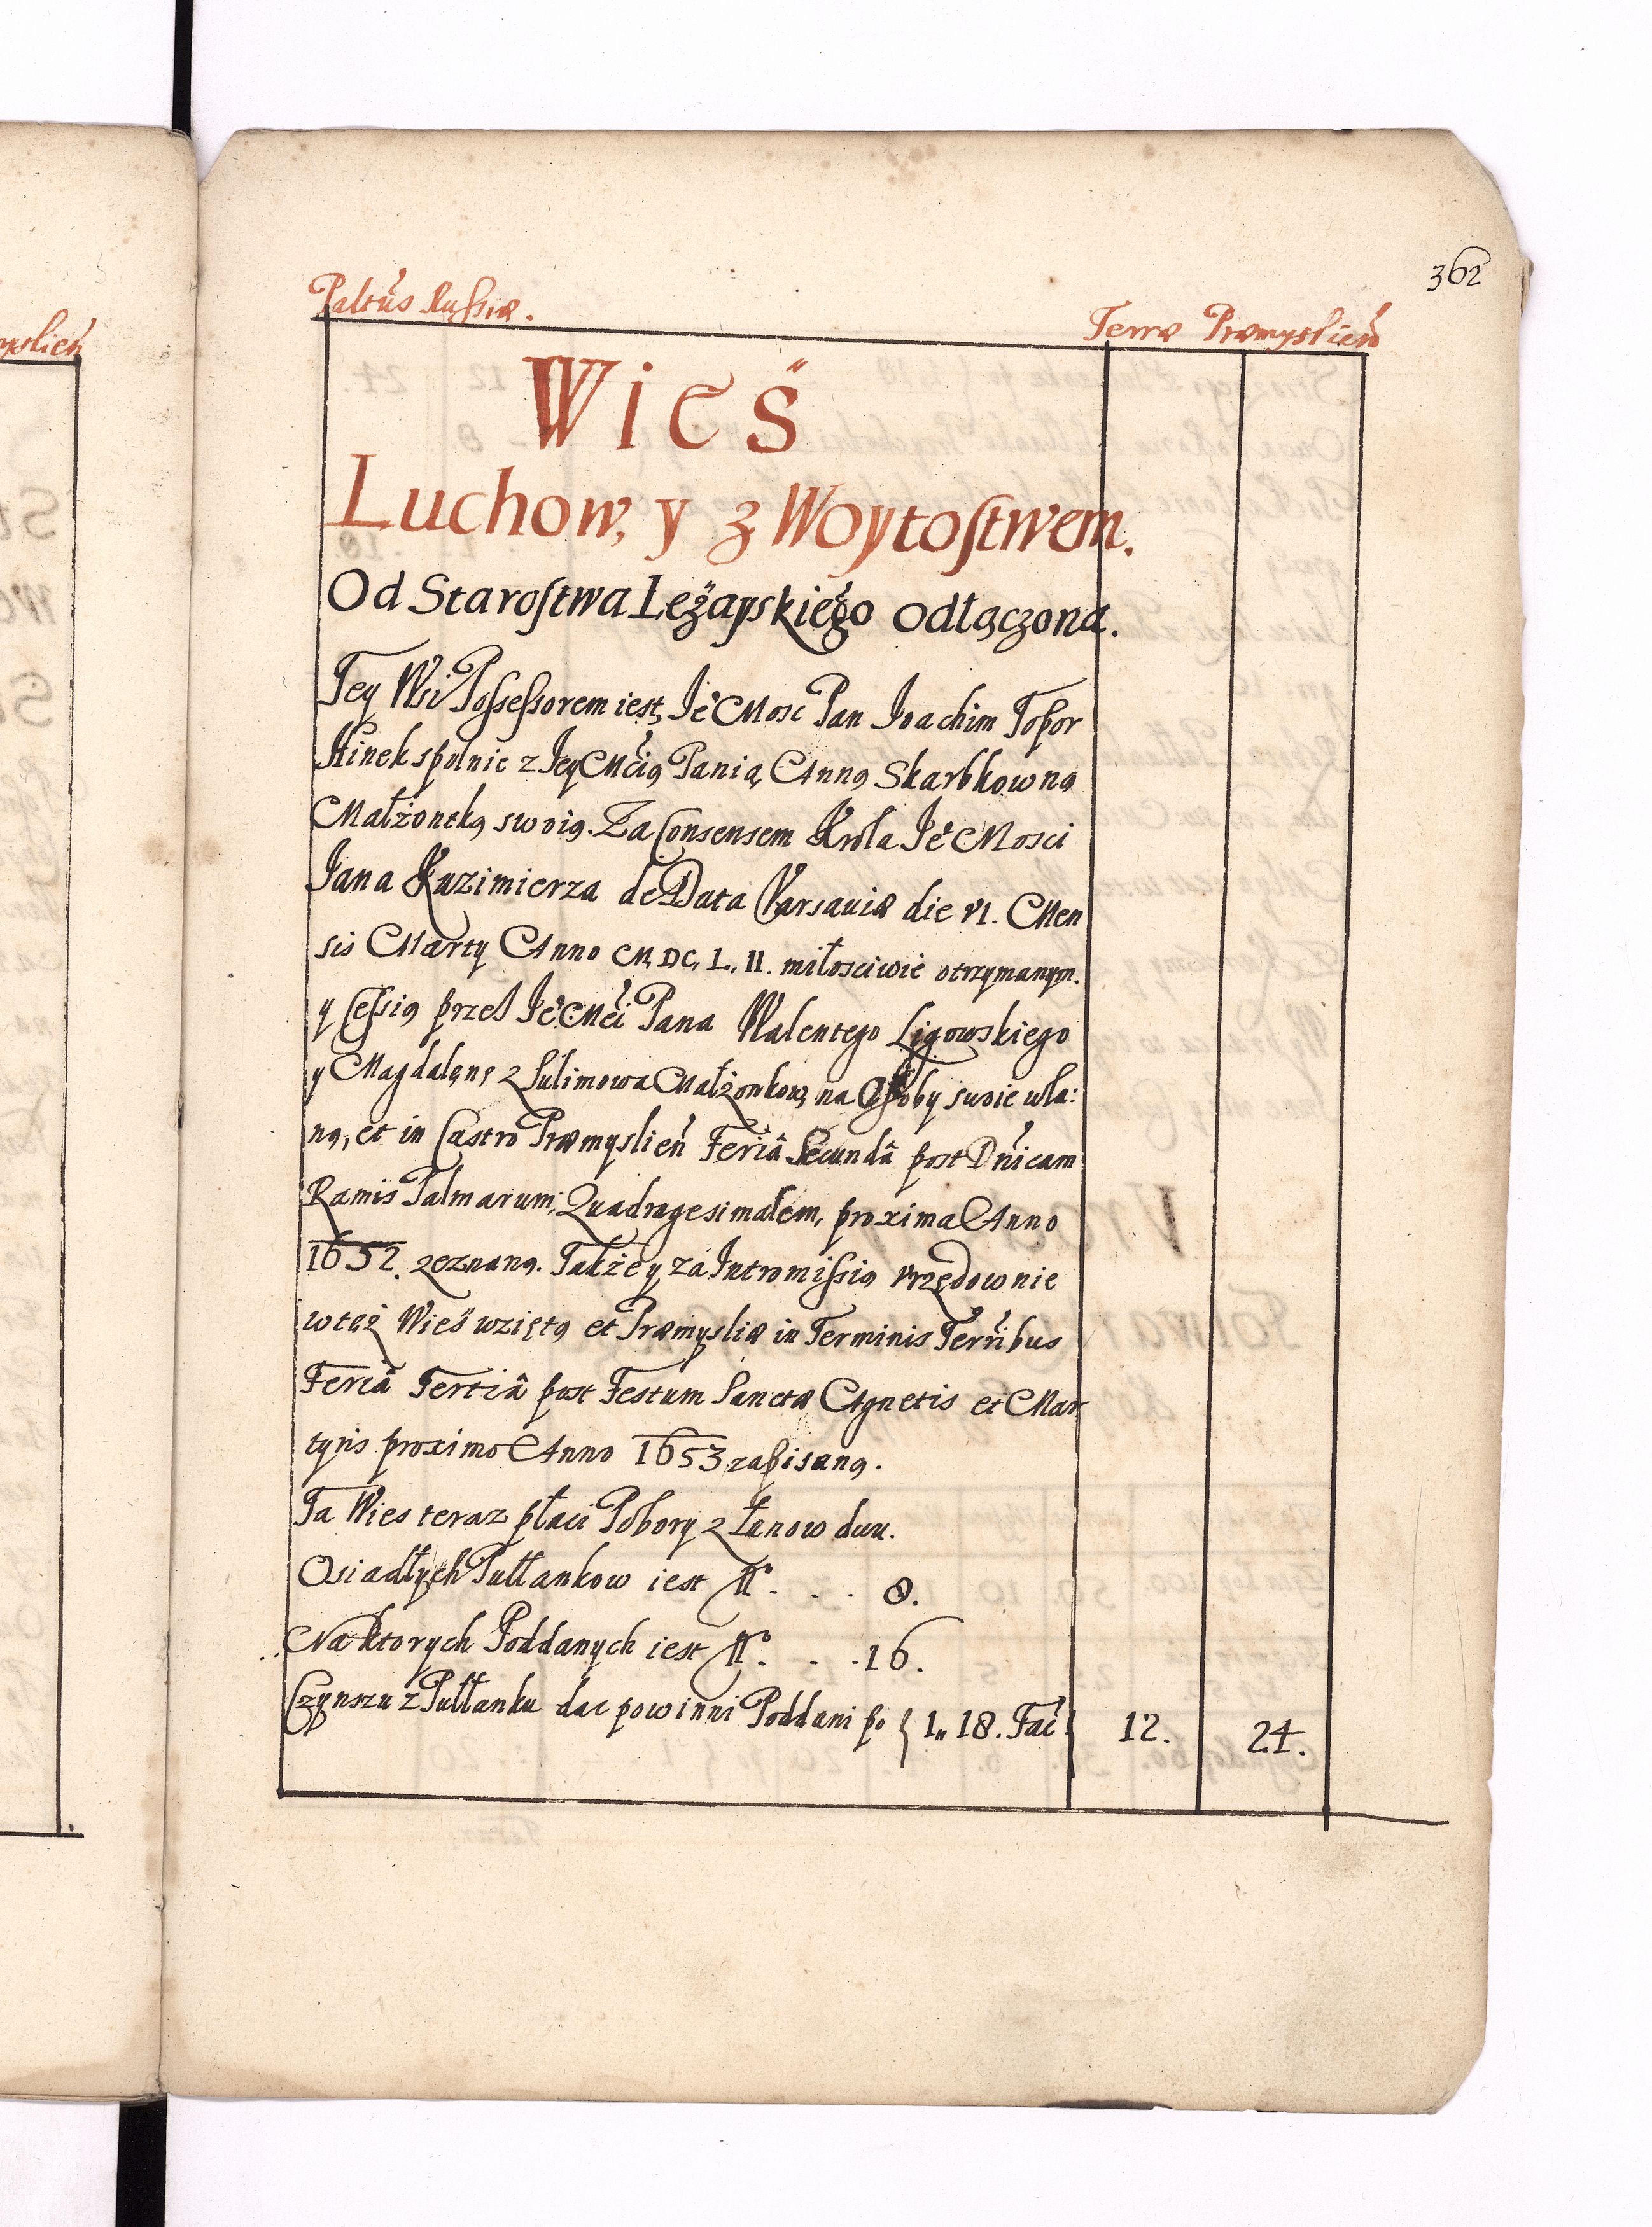 362
Paltus Russiæ.
Terræ Præmyslien
Wieś
Luchow, y z Woytostwem.
Od Starostwa Leżayskiego odłączona.
Tey Wsi Possessorem iest, Je° Mosc Pan Joachim Topor
Hinek spolnie z Jey Mcią Panią Anną Skarbkowną
Małżonką swoią. Za Consensem Krola Je° Mosci
Jana Kazimierza de Data Varsaviæ die VI. Men
sis Marty Anno M. DC. L. II. miłosciwie otrzymanym.
y Cessią przes Je° Mci Pana Walentego Ligowskiego
y Magdalęnę z Sulimowa Małżonkow, na Osoby swoie wla:
ną, et in Castro Præmyslien Feriâ Secundâ post Dnicam
Ramis Palmarum, Quadragesimalem, proxima Anno
1652. zeznaną. Także y za Intromissią vrzędownie
w tęż Wieś wziętą et Præmysliæ in Terminis Terribus
Feriâ Tertiâ post Festum Sanctæ Agnetis et Mar
tyris proximo Anno 1653 zapisaną.
Ta Wies teraz płaci Pobory z Łanow dwu.
Osiadłych Pułłankow iest N° . . . 8.
Na ktorych Poddanych iest N° . . . 16.
Czynszu z Pułłanku dac powinni Poddani po { 1„ 18. Fac 12. 24.